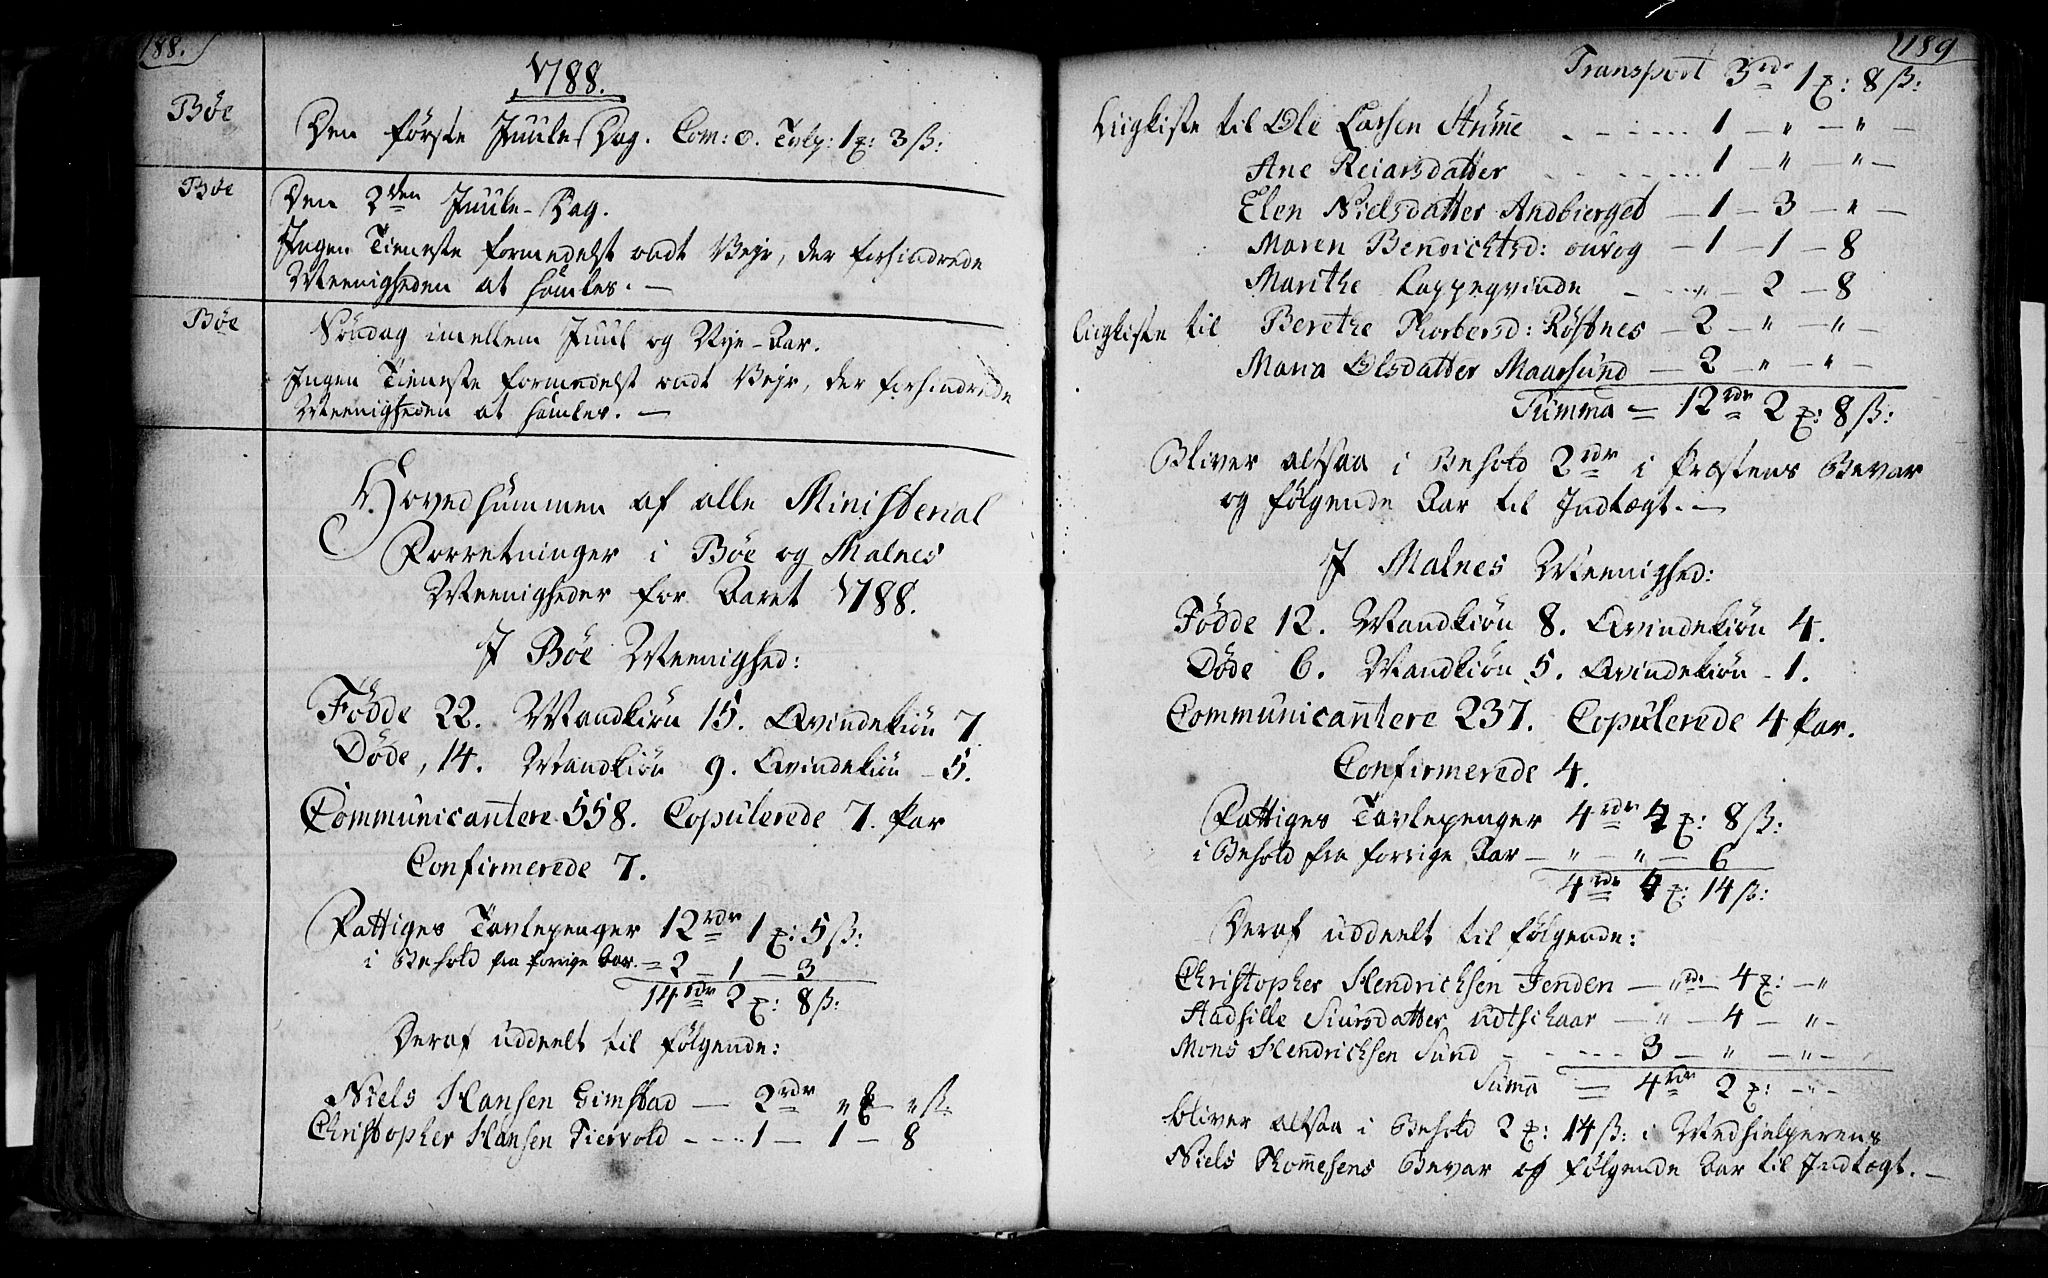 188.
1788.
Bøe
Den første Juule Dag. Com: 0. Tvlp: 1 ꝶ: 3 ß:
Bøe
Den 2den Juule-Dag.
Ingen Tieneste formedelst ondt Vejr, der forhindrede
Meenigheden at samles. —
Bøe
Søndag imellem Juul og Nye-Aar.
Ingen Tieneste formedelst ondt Vejr, der forhindrede
Meenigheden at samles. —
Hovedsummen af alle Ministerial
Forretninger i Bøe og Malnes
Meenigheder for Aaret 1788.
I Bøe Meenighed:
Födde 22. Mandkiön 15. Qvindekiön 7
Døde, 14. Mandkiön 9. Qvindekiön - 5.
Communicantere 558. Copulerede 7. Par
Confirmerede 7.
Fattiges Tavlepenger 12 rdr 1 ꝶ: 5 ß:
i Behold fra forrige Aar. = 2 - 1 - 3
14 rdr 2 ꝶ: 8 ß:
Deraf uddeelt til følgende:
Niels Hansen Gimstad — 2 rdr " ꝶ — " ß
Christopher Hansen Fiervold - - - - 1 — 1 — 8
189
Transport 3 rdr 1 ꝶ: 8 ß:
Liigkiste til Ole Larsen Stumme - - - - ... 1 — " — " —
Ane Reiarsdatter - - - .... 1 — " — " —
Elen Nielsdatter Andbierget — 1 — 3 — " —
Maren Bendichtsd: ousog — 1 — 1 — 8
Marithe Lappeqvinde - - - " — 2 — 8
Liigkiste til Berethe Thorbersd: Røstnes — 2 — " — " —
Maria Olsdatter Maarsund — 2 — " — " —
Summa = 12 rdr 2 ꝶ: 8 ß:
Bliver altsaa i Behold 2 rdr i Præstens Bevar
og følgende Aar til Indtægt. —
I Malnes Meenighed:
Födde 12. Mandkiön 8. Qvindekiön 4.
Døde 6. Mandkiön 5. Qvindekiön - 1.
Communicantere 237. Copulerede 4 Par.
Confirmerede 4.
Fattiges Tavlepenger 4 rdr 4 ꝶ: 8 ß:
i Behold fra forrige Aar — " — " — 6
4 rdr 4 ꝶ: 14 ß:
Deraf uddeelt til følgende:
Christopher Hendrichsen Jenden — " rdr — 4 ꝶ: — "
Hadsille Siursdatter udtschaar — " — 4 — " —
Mons Hendrichsen Sund - - - - - 3 — " — " —
Summa = 4 rdr 2 ꝶ: - " -
bliver altsaa i Behold 2 ꝶ: 14 ß: i Medhielperens
Niels Thomesens Bevar og følgende Aar til Indtægt. —